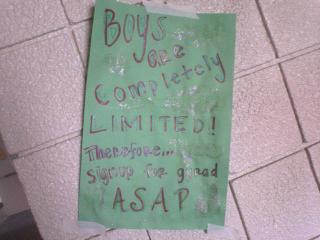 Boys
are
completely
LIMITED!
Therefore...
sign up for
ASAP